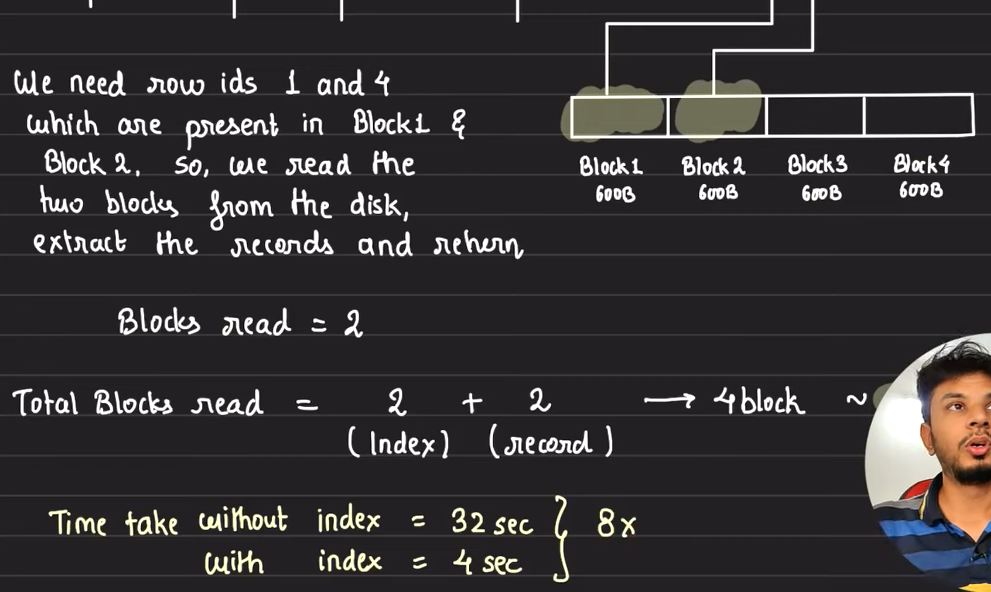 We need row ids 1 and 4
which are present in Block1 &
Block 2. So, we read the
two blocks from the disk,
extract the records and return
Block1 Block2 Block3 Block4
600B 600B 600B 600B
Blocks read = 2
Total Blocks read = 2 + 2 → 4 block ~
(Index) (record)
Time take without index = 32 sec } 8x
with index = 4 sec